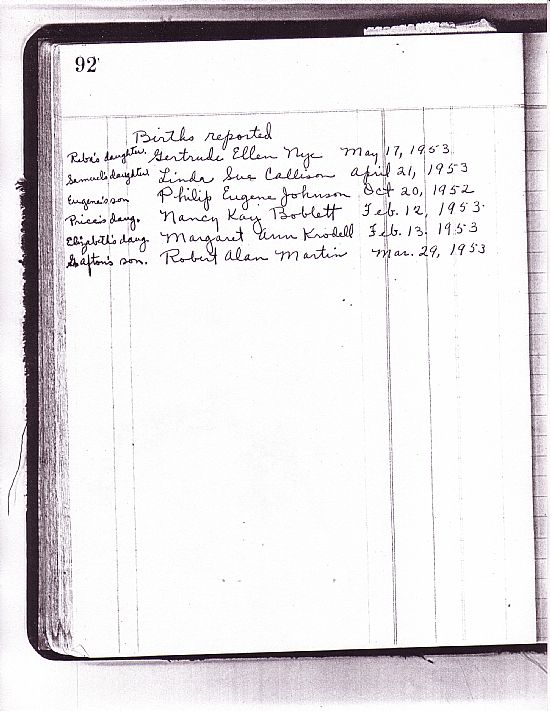 92
Births reported
Reba's daughter. Gertrude Ellen Nye May 17, 1953
Samuel's daughter Linda Sue Callison April 21, 1953
Eugene's son Philip Eugene Johnson Oct 20, 1952
Price's daug. Nancy Kay Boblett Feb. 12, 1953.
Elizabeth's daug Margaret Ann Krodell Feb. 13. 1953
Grafton's son. Robert Alan Martin Mar. 29, 1953